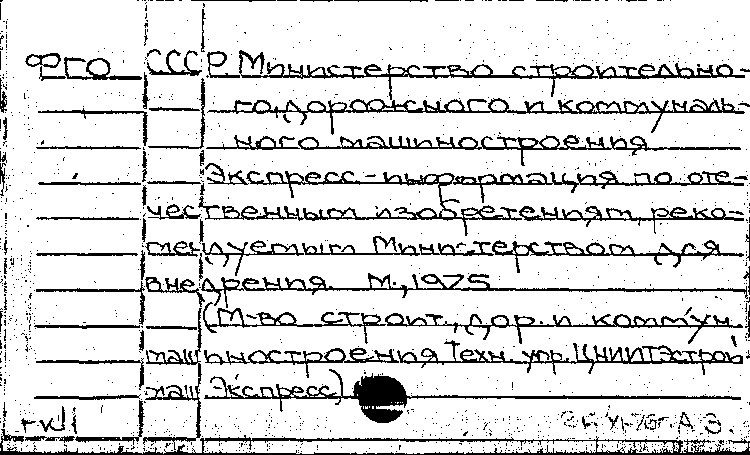 ФГО СССР. Министерство строительно-
го, дорожного и коммуналь-
ного машиностроения
Экспресс-информация по оте-
чественным изобретениям, реко-
мендуемым Министерством для
внедрения. М., 1975
(М-во строит., дор. и коммун.
машиностроения Техн. упр. ЦНИИТЭстрой-
маш Экспресс)